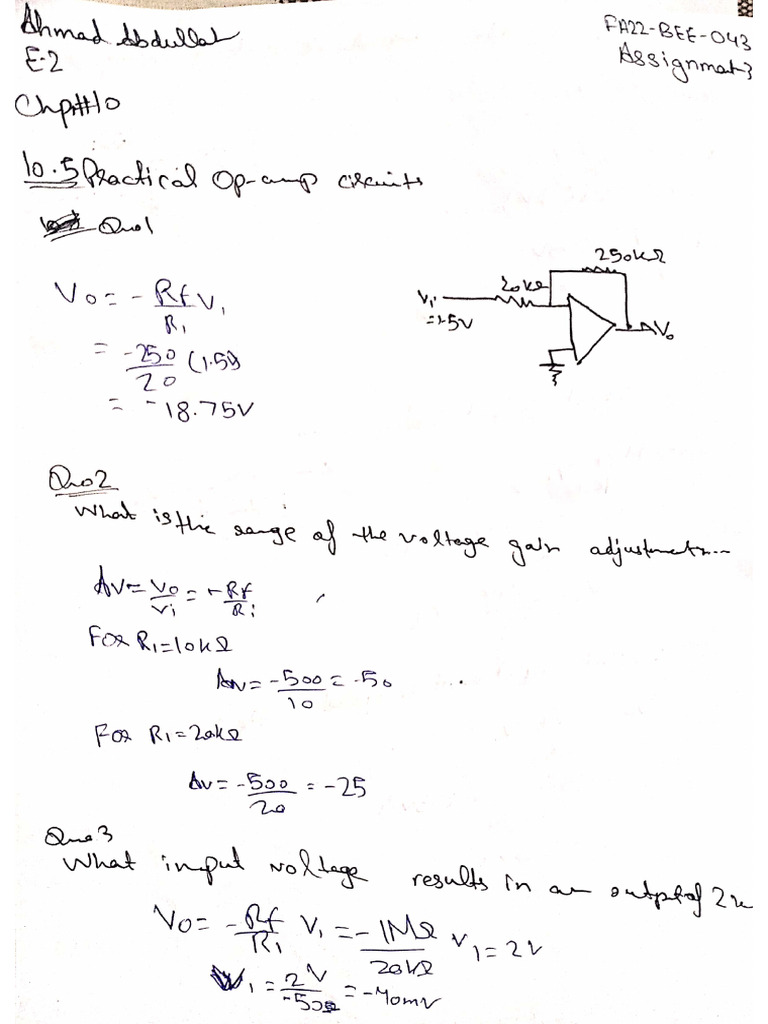 Ahmad Abdullah
FA22-BEE-043
E-2
Assignment 3
Chp#10
10.5 Practical Op-amp circuits
Quo1
250kΩ
20kΩ
V₁
=1.5V
Vo
Vo = -Rf/R₁ V₁
= -250/20 (1.5)
= -18.75V
Quo2
What is the range of the voltage gain adjustment...
Av = Vo/Vi = -Rf/Ri
For R₁=10kΩ
Av = -500/10 = -50
For R₁=20kΩ
Av = -500/20 = -25
Quo3
What input voltage results in an output of 2v
Vo = -Rf/R₁ V₁ = -1MΩ/20kΩ V₁ = 2V
V₁ = 2V/-50 = -40mV